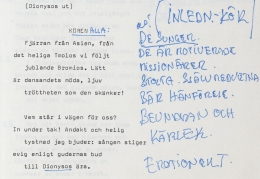 [Dionysos ut]
KÖREN ALLA:
Fjärran från Asien, från
det heliga Tmolos vi följt
jublande Bromios. Lätt
är dansandets möda, ljuv
tröttheten som den skänker!
Vem står i vägen för oss?
In under tak! Andakt och helig
tystnad jag bjuder: sången stiger
evig enligt gudernas bud
till Dionysos ära.
(INLEDN.-KÖR)
DE SJUNGER.
DE ÄR MOTIVERADE
MISSIONÄRER.
STOLTA. SJÄLVMEDVETNA
BÄR HÄNFÖRELSE.
BEUNDRAN OCH
KÄRLEK.
EROTISKT.